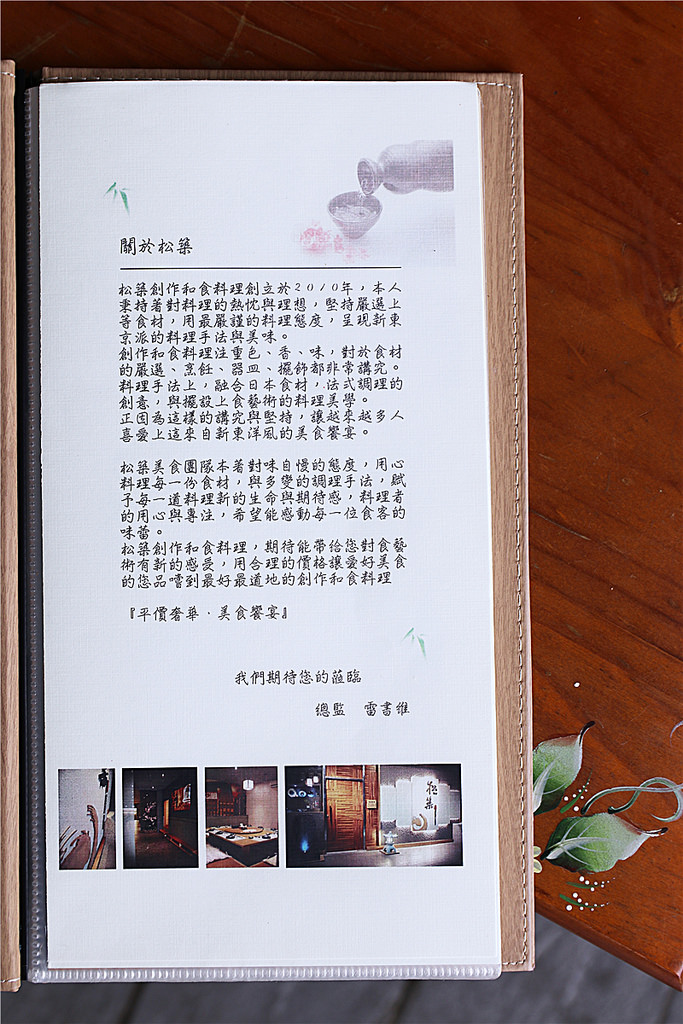 關於松築
松築創作和食料理創立於2010年，本人
秉持著對料理的熱忱與理想，堅持嚴選上
等食材，用最嚴謹的料理態度，呈現新東
京派的料理手法與美味。
創作和食料理注重色、香、味，對於食材
的嚴選、烹飪、器皿、擺飾都非常講究。
料理手法上，融合日本食材，法式調理的
創意，與擺設上食藝術的料理美學。
正因為這樣的講究與堅持，讓越來越多人
喜愛上這來自新東洋風的美食饗宴。
松築美食團隊本著對味自慢的態度，用心
料理每一份食材，與多變的調理手法，賦
予每一道料理新的生命與期待感，料理者
的用心與專注，希望能感動每一位食客的
味蕾。
松築創作和食料理，期待能帶給您對食藝
術有新的感受，用合理的價格讓愛好美食
的您品嚐到最好最道地的創作和食料理
『平價奢華．美食饗宴』
我們期待您的蒞臨
總監 雷書維
松築